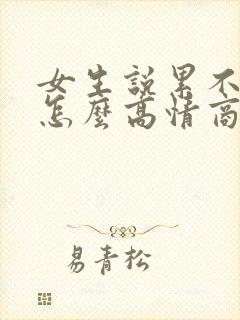 女生說累不
怎麼高情商
易青松